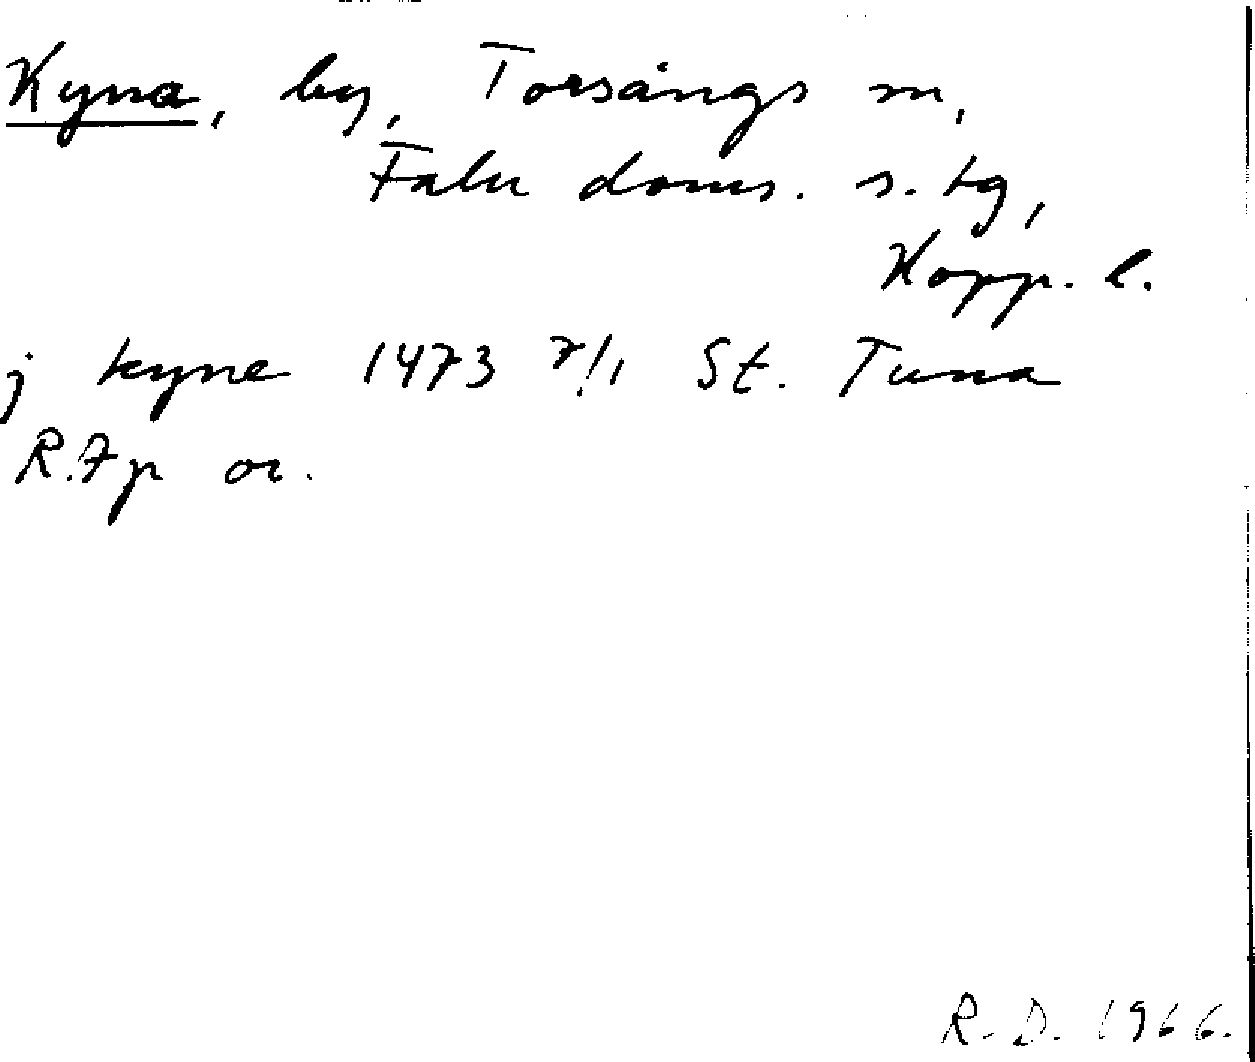 Kyna, by, Torsångs sn,
Falu doms. s. tg,
Kopp. l.
j kyne 1473 7/1 St. Tuna
R.Ap or.
R. D. 1966.